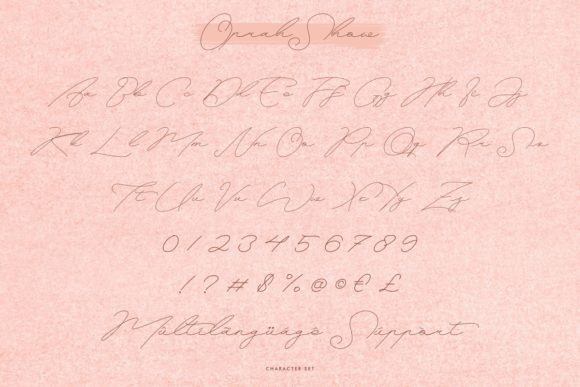 Oprah Show
Aa Bb Cc Dd Ee Ff Gg Hh Ii Jj
Kk Ll Mm Nn Oo Pp Qq Rr Ss
Tt Uu Vv Ww Xx Yy Zz
0 1 2 3 4 5 6 7 8 9
! ? # $ % @ © € £
Múltilángüágè Súpport
CHARACTER SET